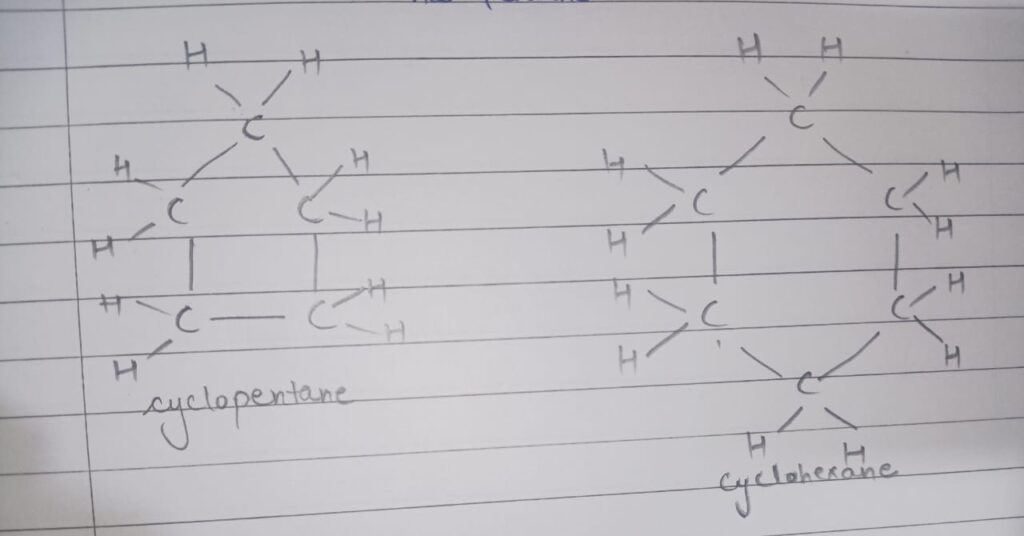 H H H H
C C
H H H H
C C C C
H H H H
H H H H
C C C C
H H H H
C
cyclopentane
H H
cyclohexane